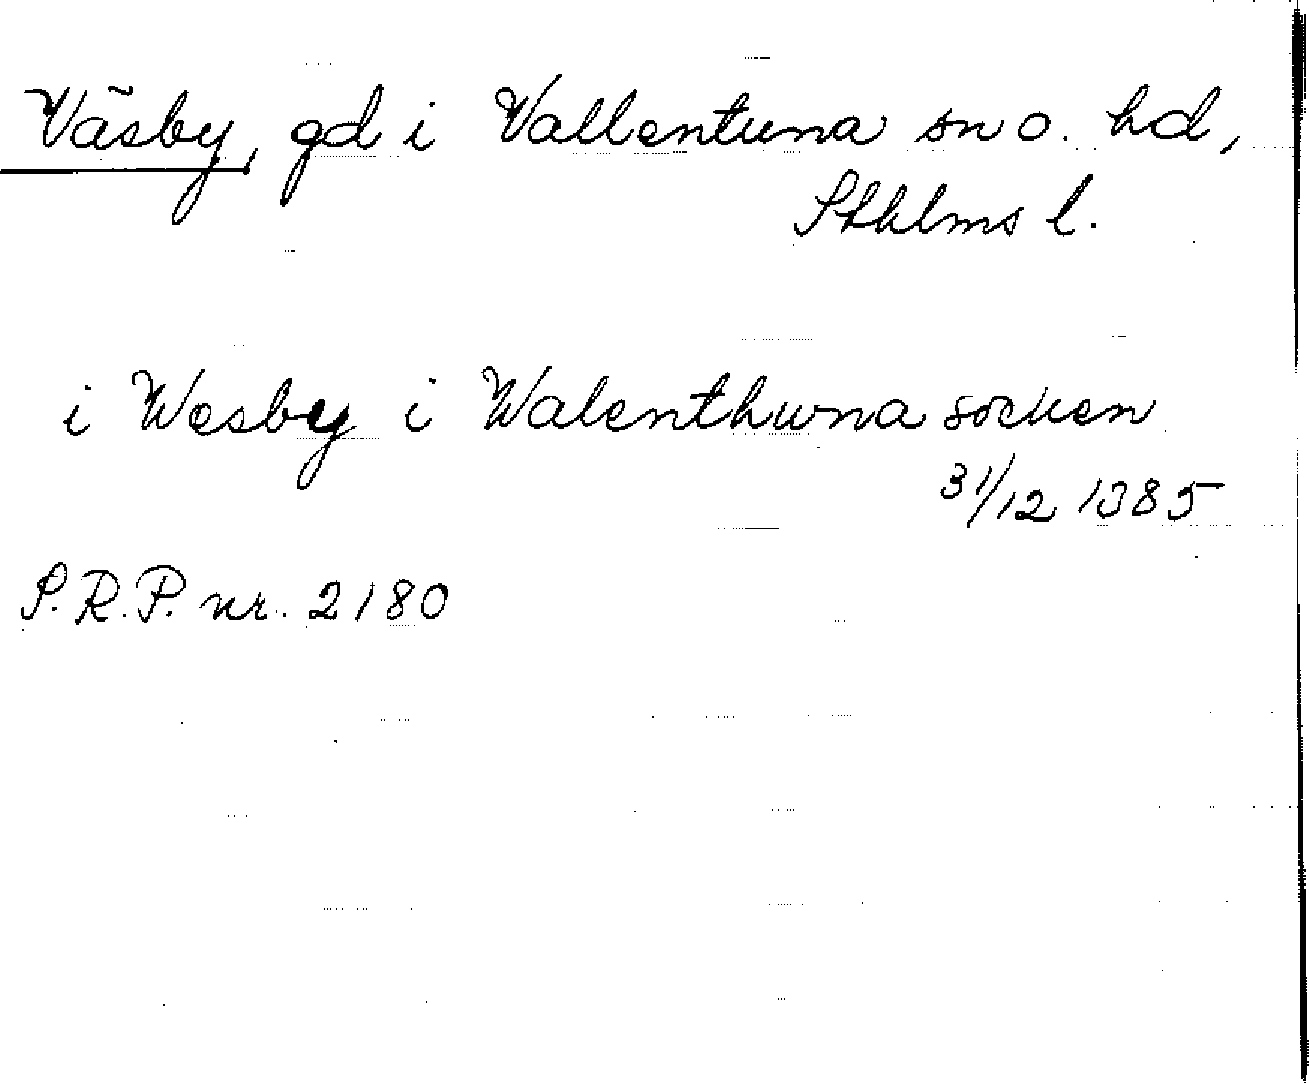 Väsby, gd i Vallentuna sn o. hd,
Sthlms l.
i Wesby i Walenthwna socken
31/12 1385
S.R.P. nr. 2180